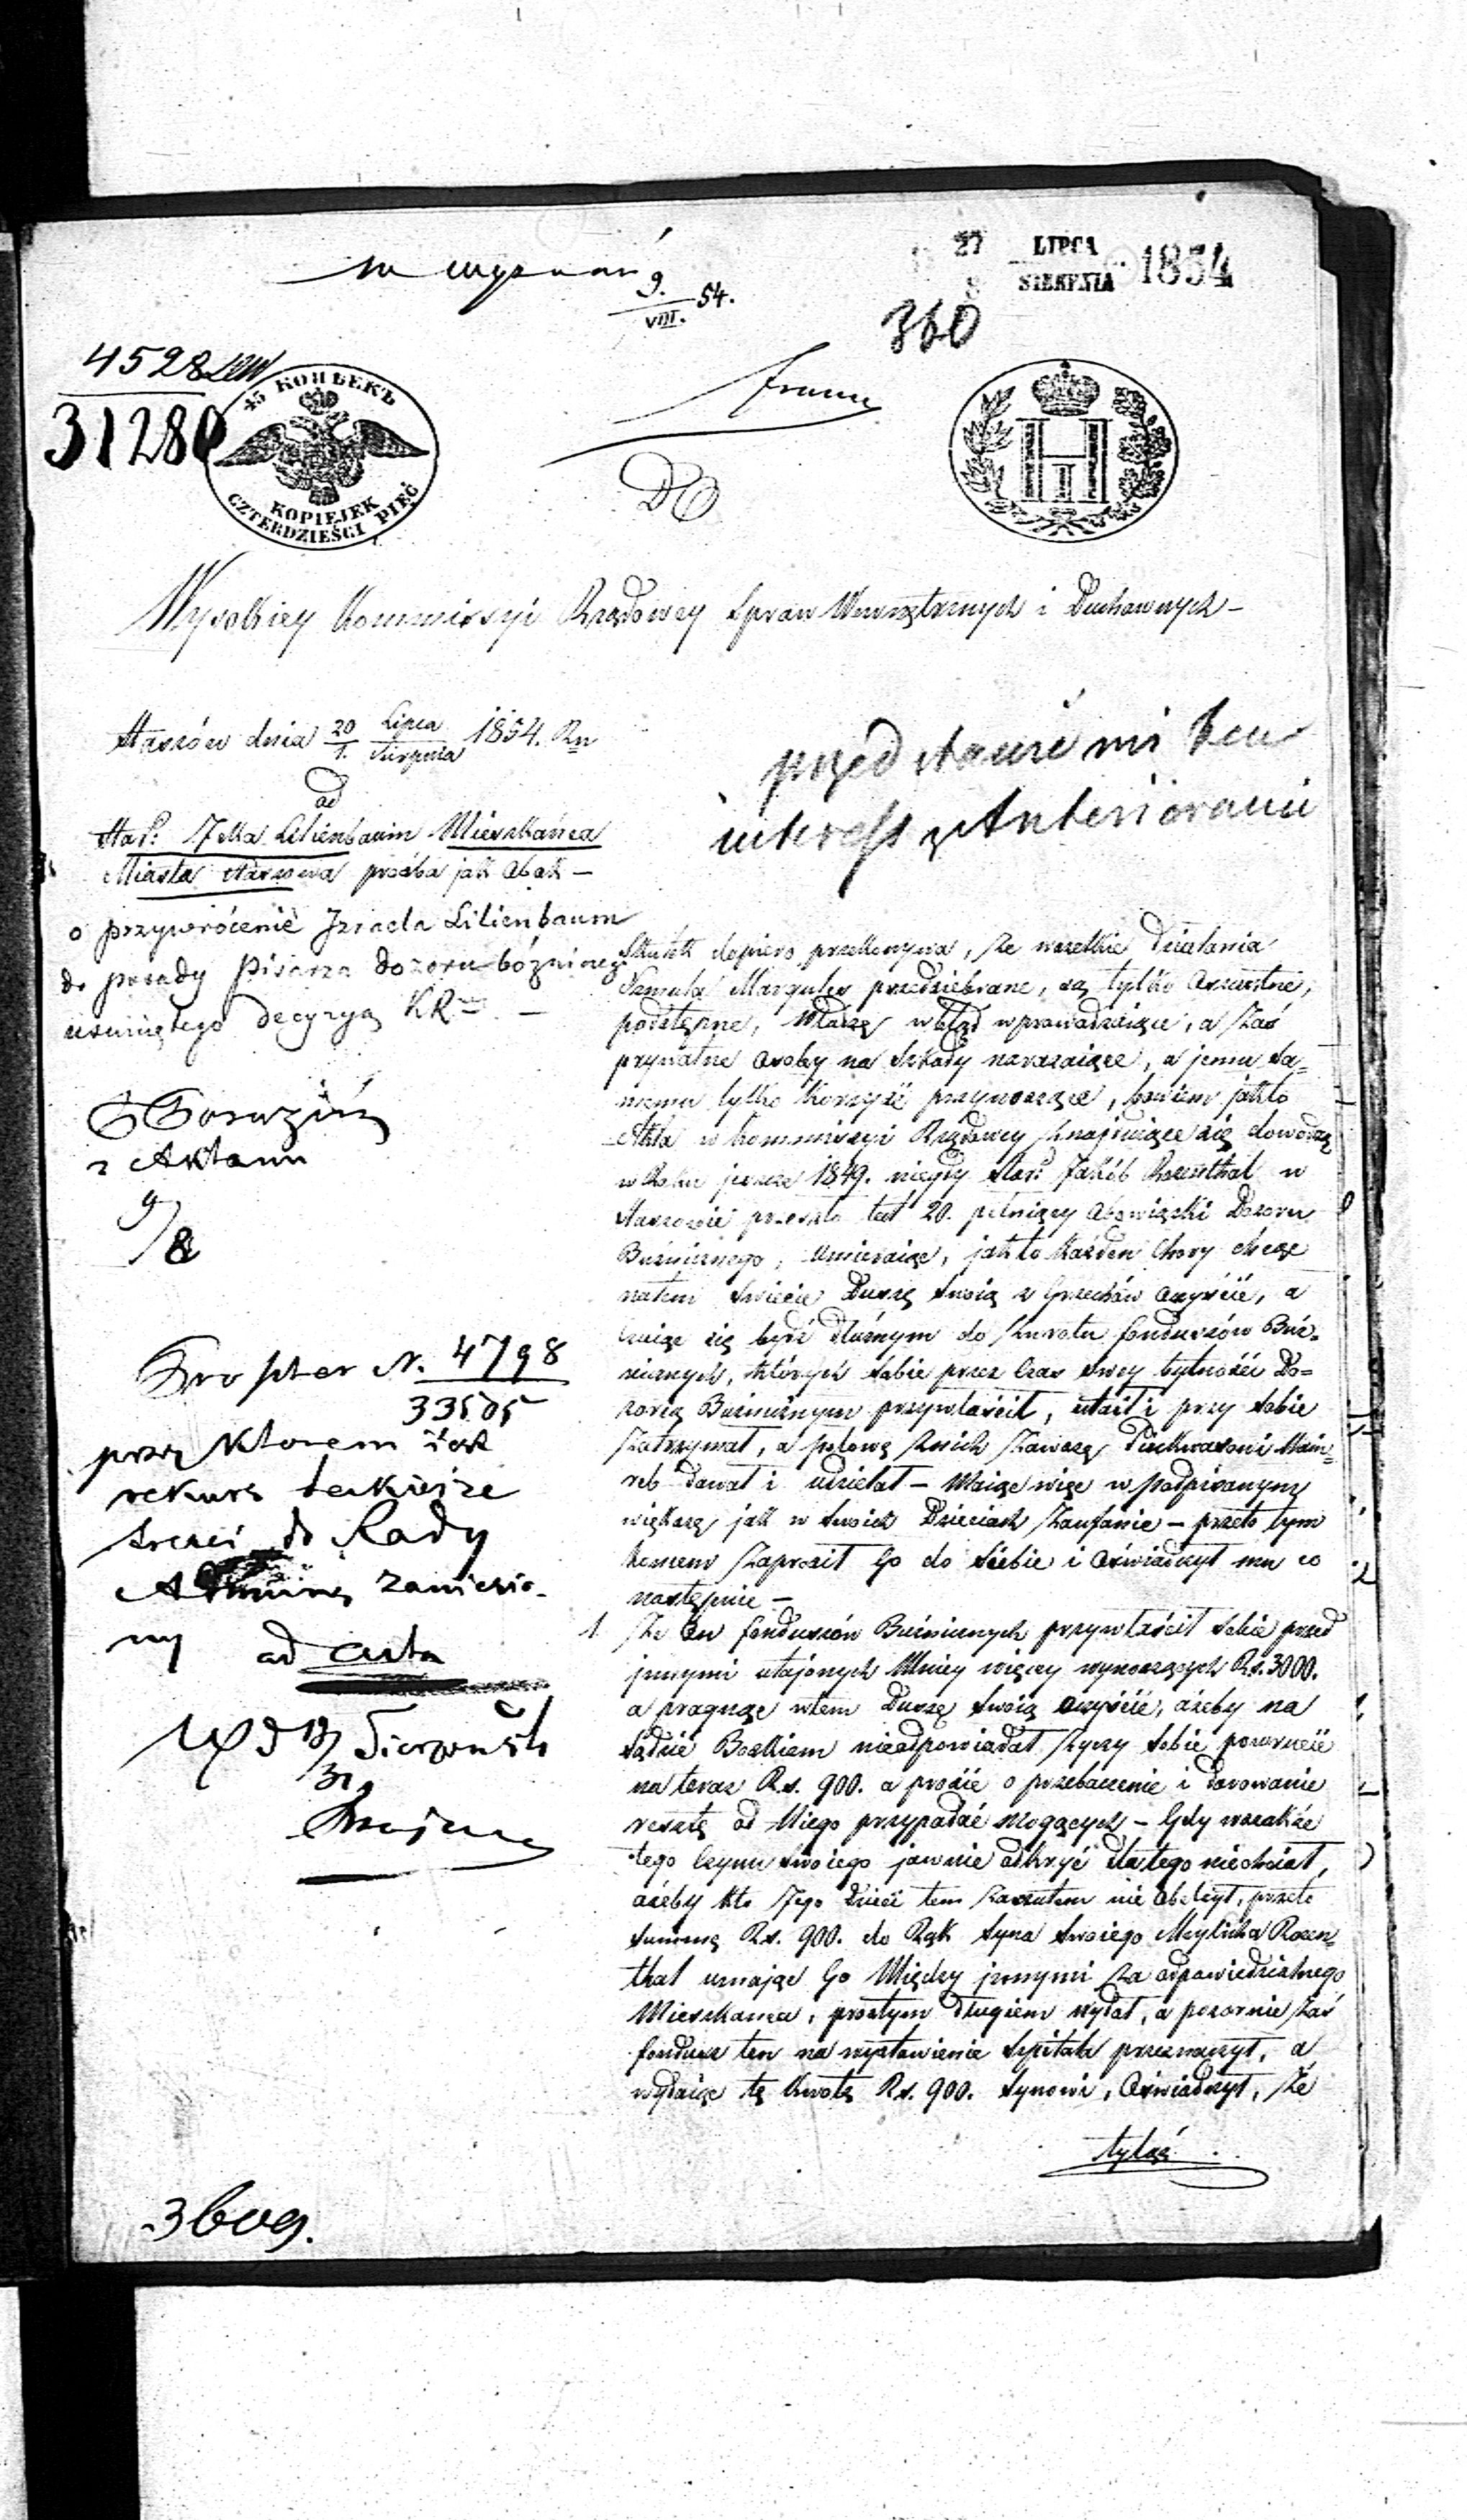 27 LIPCA 1854
8 SIERPNIA
9. 54.
VIII.
360
4528
31280
45 КОПѢЕКЪ
KOPIEJEK
CZTERDZIEŚCI PIĘĆ
Wysokiey Kommissyi Rządowey Spraw Wewnętrznych i Duchownych –
Staszów dnia 20 Lipca 1854. Rn
1. Sierpnia
od
Star: Icka Lilienbaum Mieszkańca
Miasta Staszowa prośba jak obok –
o przywrócenie Izraela Lilienbaum
do posady Pisarza dozoru bóżniczego
usuniętego decyzyą KR –
z Aktami
9/8
przedstawić mi ten
interess z Anterioramii
N. 4798
33505
przy którem iest
rekurs teckieize
treści do Rady
zaniesio-
ny ad acta
Skutek dopiero przekonywa, że wszelkie działania
Szmula Margules przedsiębrane, są tylko oszustne,
podstępne, Władzę w błąd wprowadzaiące, a zaś
prywatne osoby na szkody narażaiące, a jemu sa-
memu tylko korzyść przynoszące, bowiem jak to
Akta w Kommissyi Rządowey znajduiące się dowodzą
w Roku jeszcze 1849. niegdy Star: Jakób Rozenthal w
Staszowie przeszło lat 20. pełniący obowiązki Dozoru
Bużnicznego, umieraiąc, jak to każden Chory chcąc
na tem świecie Duszę swoią z Grzechów oczyścić, a
czuiąc się bydź dłużnym do zwrotu funduszów Buż-
nicznych, których sobie przez czas swey bytności Do-
zorcą Bużnicznym przywłaścił, utaił i przy sobie
zatrzymał, a połowę z nich zawsze Pinkwasowi Main-
reb dawał i udzielał – Maiąc więc w podpisanym
większe jak w swoich Dzieciach zaufanie – przeto tym
końcem zaprosił Go do siebie i oświadczył mu co
następuie –
1. że On funduszów Bużnicznych przywłaścił sobie przed
innymi utajonych Mniey więcey wynoszących Rs. 3000.
a pragnąc w tem Duszę swoią oczyścić, ażeby na
Sądzie Boskiem nieodpowiadał, życzy sobie powrócić
na teraz Rs. 900. a prosić o przebaczenie i darowanie
resztę od Niego przypadać mogących – Gdy wszakże
tego czynu swoiego jawnie odkryć dla tego niechciał,
ażeby kto Jego Dzieci tem zarzutem nie obelżył, przeto
summę Rs. 900. do Rąk Syna swoiego Meylicha Rozen-
thal uznając Go Między innymi za odpowiedzialnego
Mieszkańca, prostym długiem wydał, a pozornie zaś
fundusz ten na wystawienie Szpitala przeznaczył, a
wydaiąc tę kwotę Rs. 900. Synowi, oświadczył, że
tyląż